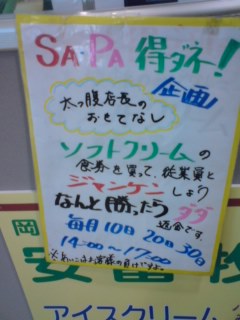 SA・PA 得ダネ!
企画!
太っ腹店長の
おもてなし
ソフトクリームの
食券を買って、従業員と
ジャンケンしよう
なんと勝ったら タダ
返金です。
毎月10日 20日 30日
14:00〜17:00
岡
アイスクリーム